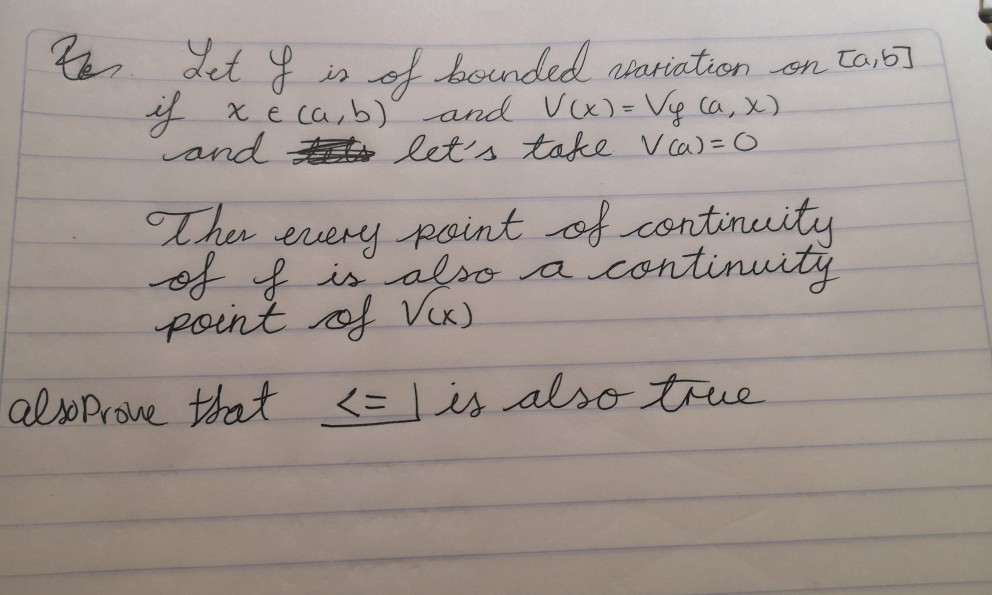 Let f is of bounded variation on [a,b]
if x ∈ (a,b) and V(x) = Vf (a, x)
and let's take V(a)=0
Then every point of continuity
of f is also a continuity
point of V(x)
also Prove that <= is also true